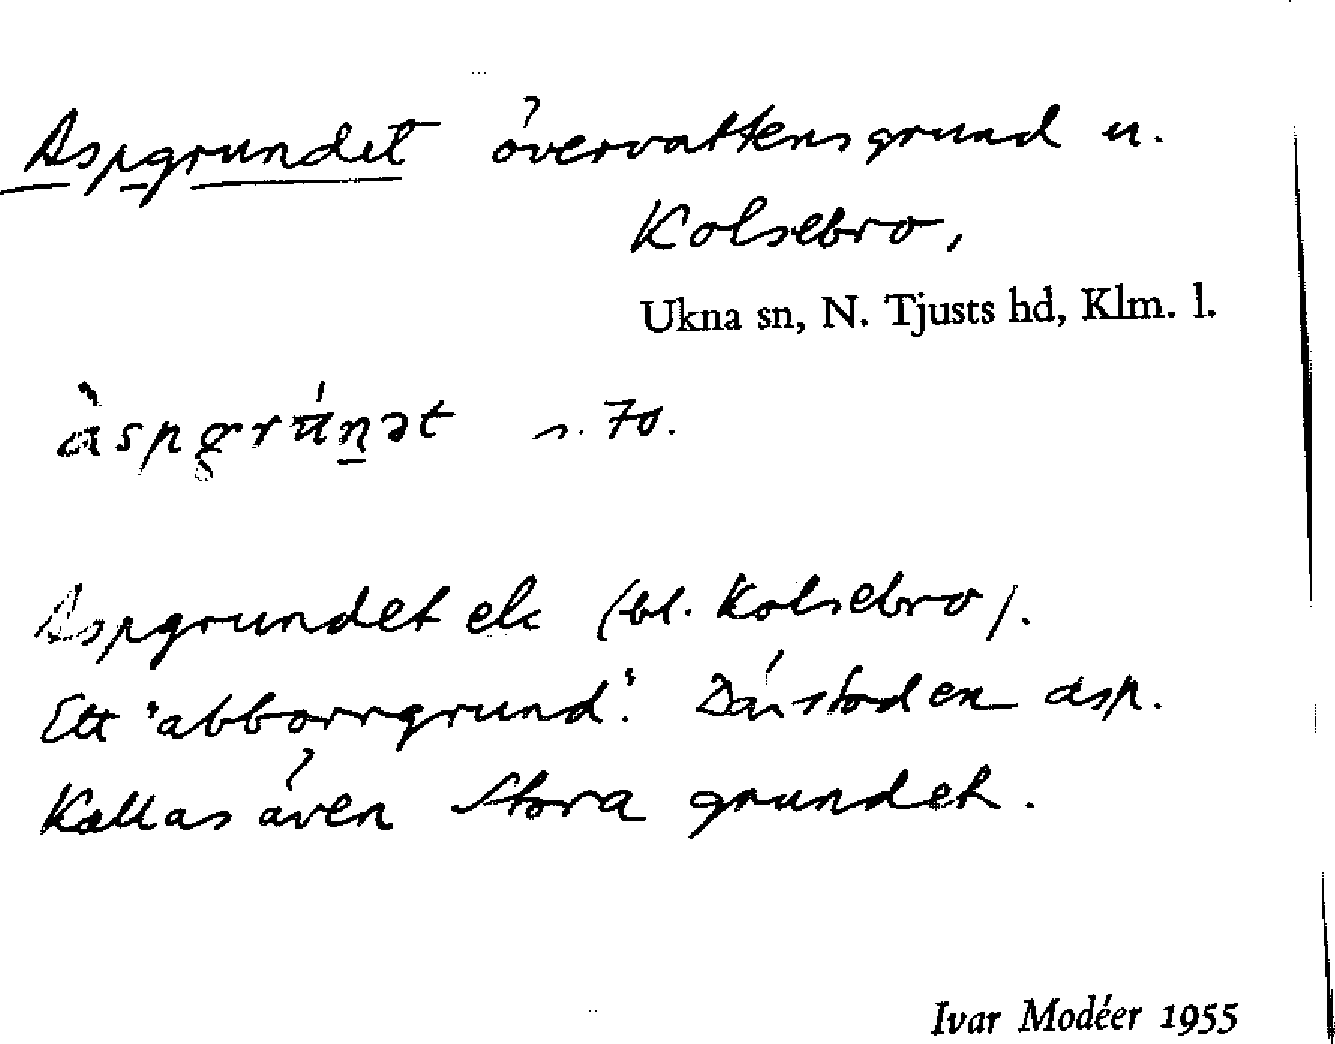 Aspgrundet övervattensgrund u.
Kolsebro,
Ukna sn, N. Tjusts hd, Klm. l.
s. 70.
Aspgrundet ek (bl. Kolsebro).
Ett "abborrgrund". Där stod en asp.
Kallas även Stora grundet.
Ivar Modéer 1955